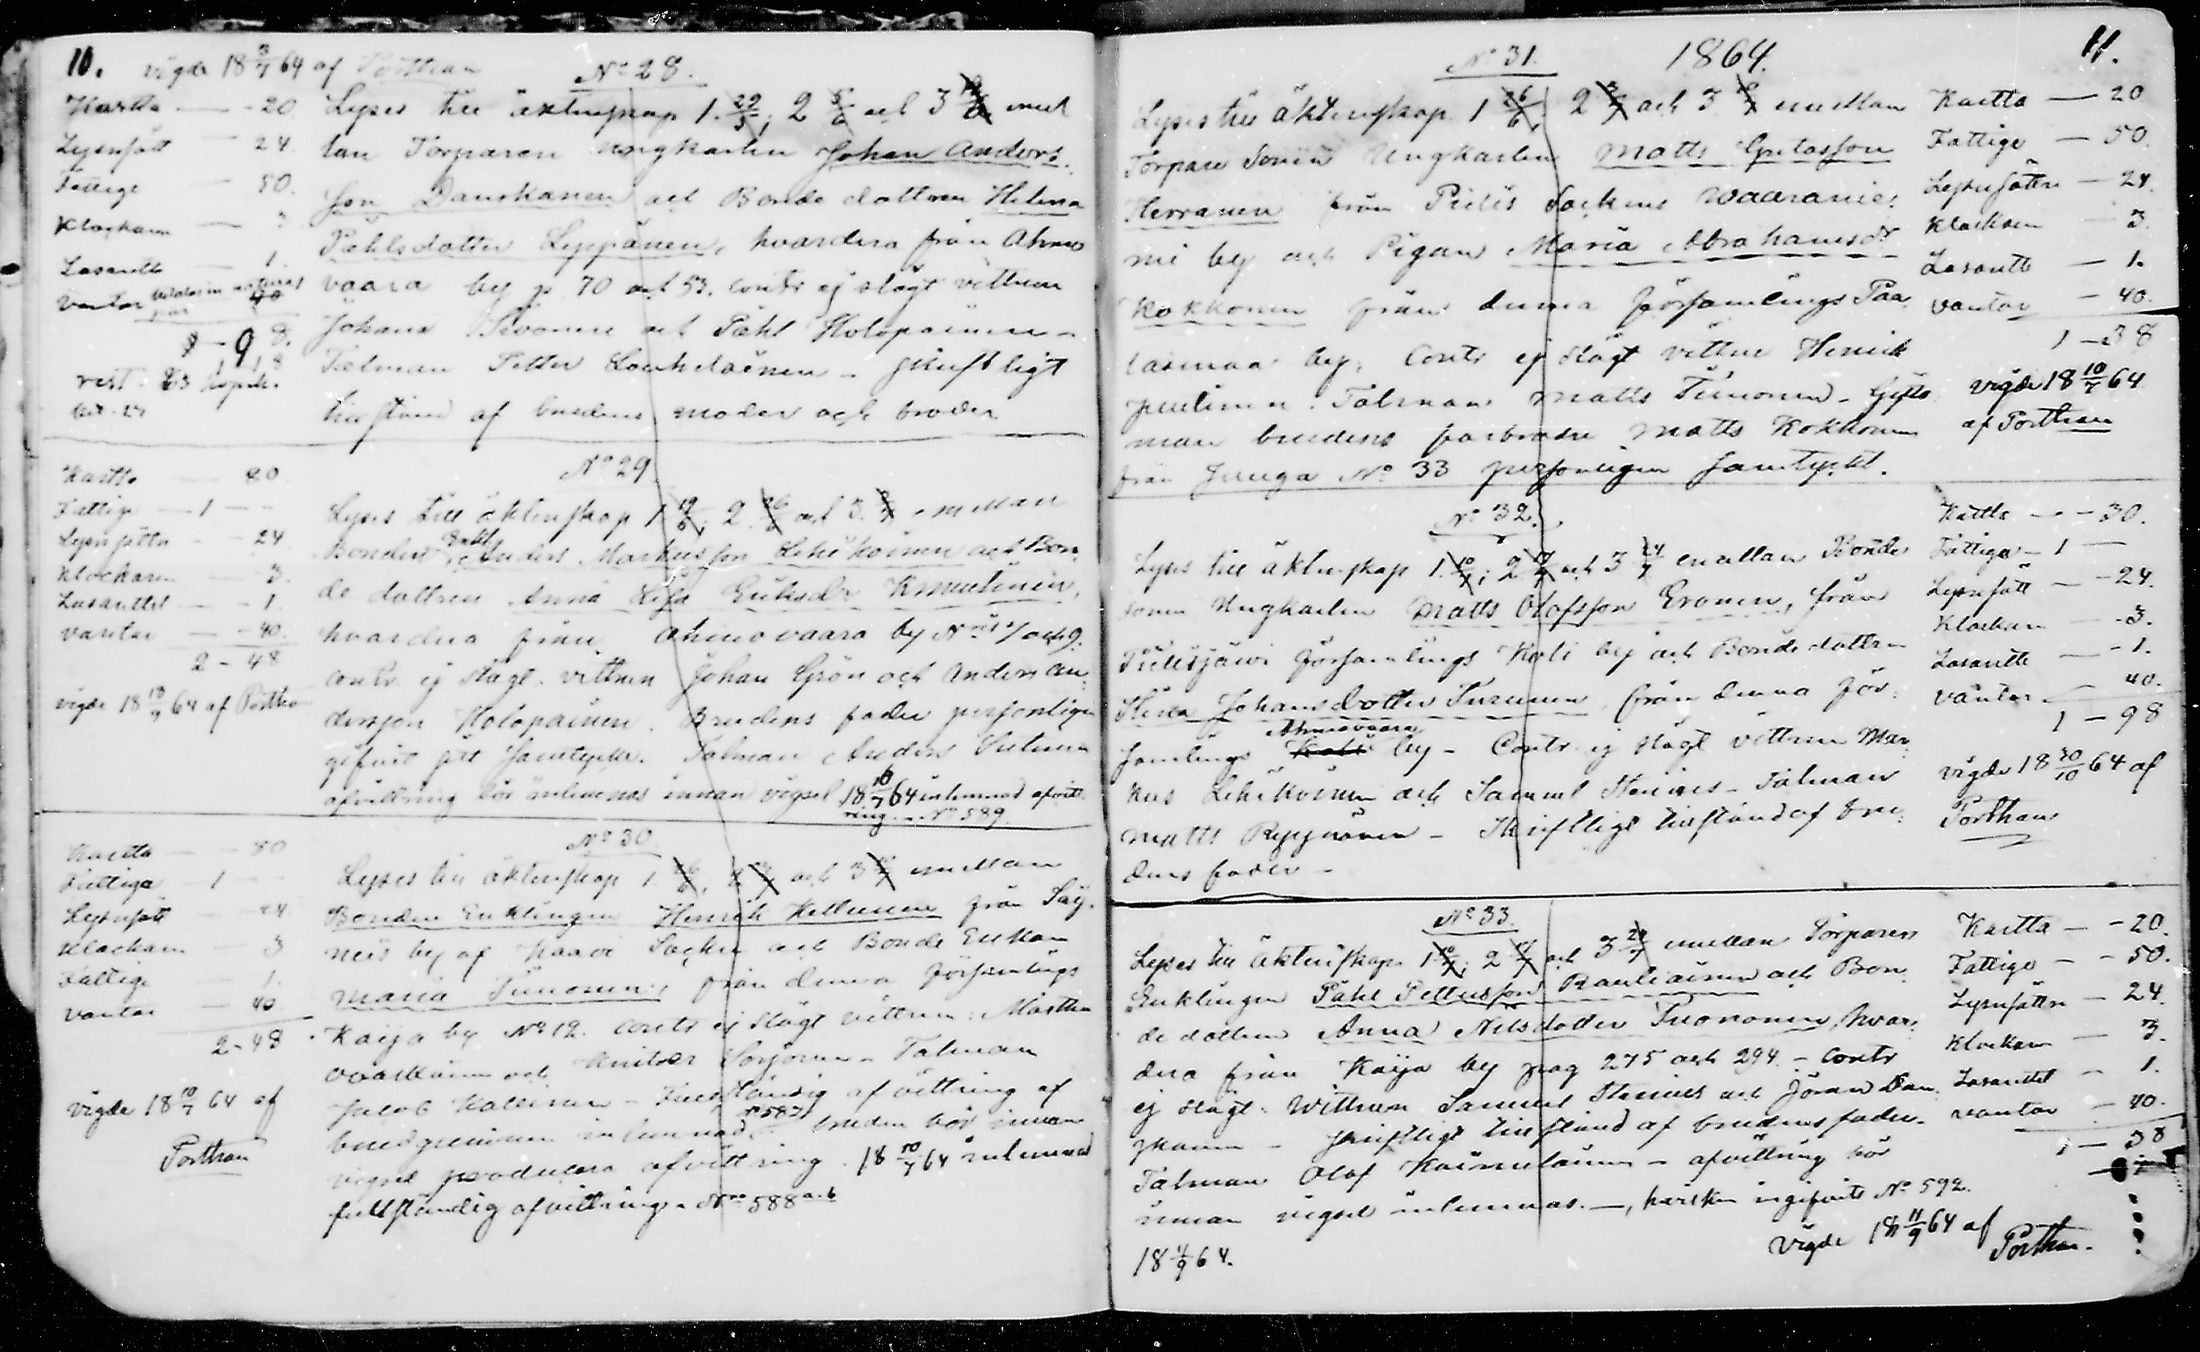 10. vigde 18 3/7 64 af Porthan
No 28.
Kartta — 20
Lysnsätt — 24
Fattige — 50.
Klockaren — 3
Lasarett — 1.
vantar
Lyses till äktenskap 1. 29/5, 2 5/6 och 3 emel
lan Torparen Ungkarlen Johan Anders-
son Danskanen och Bonde dottren Helena
Påhlsdotter Leppänen, hvardera från Ahmo
vaara by p 70 och 53. contr ej slägt vittnen
Johan och Påhl Holopainen -
Talman Petter Louhelainen - skriftligt
tillstånd af brudens moder och broder
No 29
Kartta — 80
Fattige — 1 —
Lysnsätta — 24
Klockaren — 3.
Lasarettet — 1
vantar — 40.
2 - 48
vigde 18 18/9 64 af Portha
Lyses till äktenskap 1 19/6, 2. 26/6 och 3. 3/7 emellan
Bonden Enkl Anders Markusson Lehikoinen och Bon
de dottren Anna Lisa Eriksdr Knuutinen,
hvardera från Ahmovaara by No och 9.
contr. ej slägt. vittnen Johan Grön och Anders An
dersson Holopainen. Brudens fader personligen
gifvit sitt samtycke. Talman Anders
afvittring bör inlemnas innan vigsel 18 10/7 64 inlemnad afvitt
ring No 589.
No 30
Kartta — 80
Fattiga — 1 —
Lysnsätt — 24
Klockaren — 3
Fattige — 1.
vantar — 40.
2 - 48
vigde 18 10/7 64 af
Porthan
Lyses till äktenskap 1 26/6, 2 3/7 och 3 10/7 emellan
Bonden Enklingen Henrik Hettunen från Säy-
neis by af Kaavi Socken och Bonde Enkan
Maria Timonen, från denna Församlings
Kaija by No 12. contr ej slägt vittnen: Mårthen
och Sorjonen - Talman
Jacob - Fullständig afvittring af
brudgummen inlemnad No 587 bruden bör innan
vigsel producera afvittring. 18 10/7 64 inlemnad
fullständig afvittring. No 588 a.b
No 31.
1864.
11.
Lyses till äktenskap 1 26/6, 2 3/7 och 3 10/7 emellan
Torpare Sonen Ungkarlen Matts Gustafsson
Herranen från Pielis Sockens Waaranie-
mi by och Pigan Maria Abrahamsdr
Kokkonen från denna församlings Paa
lasmaa by, Contr ej slägt vittne Henrik
Talman Matts Timonen - Gifto
man brudens farbroder Matts Kokkonen
från Juuga No 33 personligen samtyckt.
Kartta — 20
Fattige — 50.
Lysnsätta — 24.
Klockaren — 3.
Lasarett — 1.
vantar — 40.
1 - 38
vigde 18 10/7 64
af Porthan
No 32.
Lyses till äktenskap 1. 10/7, 2 17/7 och 3 24/7 emellan Bonde
sonen Ungkarlen Matts Olofsson Eronen, från
Pielisjärvi församlings Koli by och Bonde dottren
Johansdotter Turunen från denna för-
Ahmovaara
samlings Koli by - Contr ej slägt vittnen Mar
kus Lehikoinen och Samuel - Talman
Matts - Skriftligt tillstånd af bru-
dens fader -
Kartta — 30.
Fattiga — 1 —
Lysnsätt — 24.
Klockaren — 3.
Lasarett — 1.
vantar — 40.
1 - 98
vigde 18 30/10 64 af
Porthan
No 33.
Lyses till äktenskap 1 10/7, 2 17/7 och 3 24/7 emellan Torparen
Enklingen Påhl Pettersson Rautiainen och Bon
de dottren Anna Nilsdotter Tuononen, hvar-
dera från Kaija by pag 275 och 294 - Contr
ej slägt. Wittnen Samuel och Göran Dan
skanen - skriftligt tillstånd af brudens fader.
Talman Olof - afvittring bör
innan vigsel inlemnas. —, hvilken ingifvits No 592.
18 4/9 64.
Kartta — 20.
Fattige — 50.
Lysnsätta — 24.
Klockaren — 3.
Lasarettet — 1.
vantar — 40.
1 - 38
Vigde 18 11/9 64 af
Porthan.